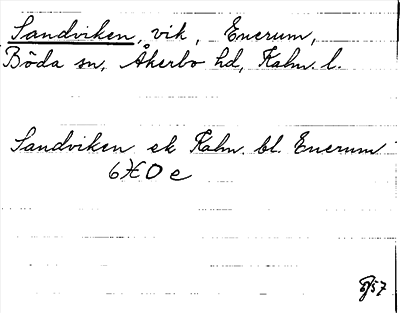 Sandviken, vik, Enerum,
Böda sn, Åkerbo hd, Kalm. l.
Sandviken ek Kalm. bl. Enerum
6 H O e